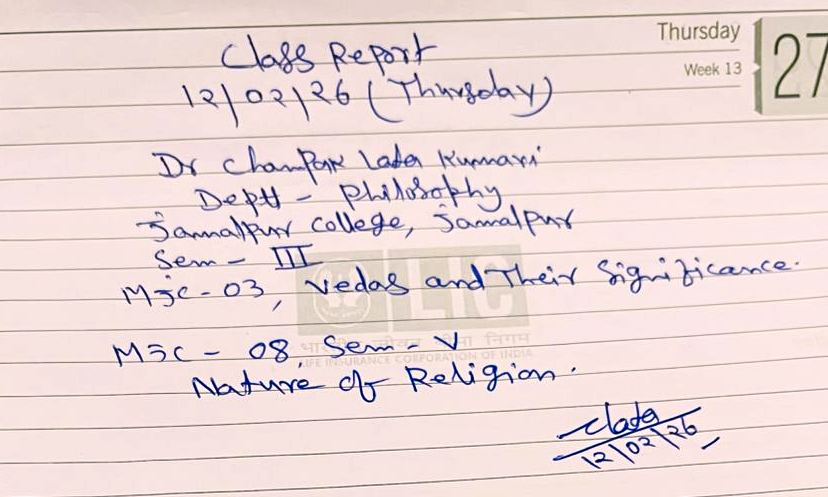 Thursday
Week 13
27
Class Report
12/02/26 (Thursday)
Dr Champak Lata Kumari
Deptt - Philosophy
Jamalpur College, Jamalpur
Sem - III
MJC - 03, Vedas and Their Significance.
LIC
भारतीय जीवन बीमा निगम
LIFE INSURANCE CORPORATION OF INDIA
MJC - 08, Sem - V
Nature of Religion.
CLata
12/02/26